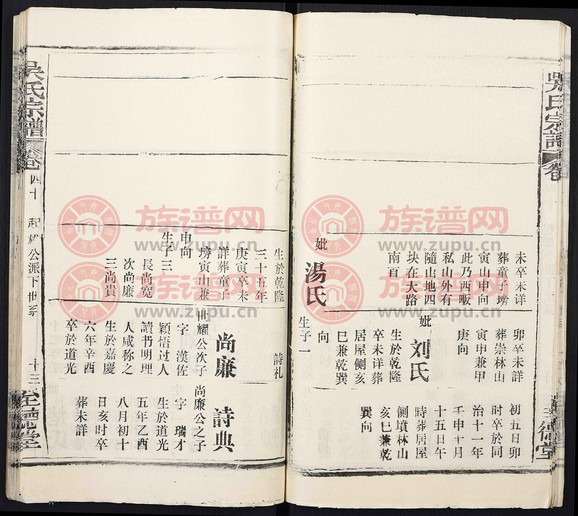 吴氏宗譜
卯卒未詳
葬崇林山
寅申兼甲
庚向
妣
刘氏
生於乾隆
卒未详葬
居屋側亥
巳兼乾巽
向
初五日卯
時卒於同
治十一年
壬申十月
十五日午
時葬居屋
側墳林山
亥巳兼乾
巽向
未卒未详
葬童子塝
寅山申向
此乃西畈
私山外有
隨山地四
块在大路
南首
妣
湯氏
生子一
生於乾隆
三十五年
庚寅卒未
詳葬童子
塝寅山兼
申向
生子三
長尚寬
次尚廉
三尚貴
詩礼
尚廉
耀公次子
字 漢佐
穎悟过人
讀书明理
人咸称之
生於嘉慶
六年辛酉
卒於道光
詩典
尚廉公之子
字 瑞才
生於道光
五年乙酉
八月初十
日亥时卒
葬未詳
吴氏宗譜
卷
四十
公派下世系
十三
至德堂
族谱网
www.zupu.cn
族谱网
www.zupu.cn